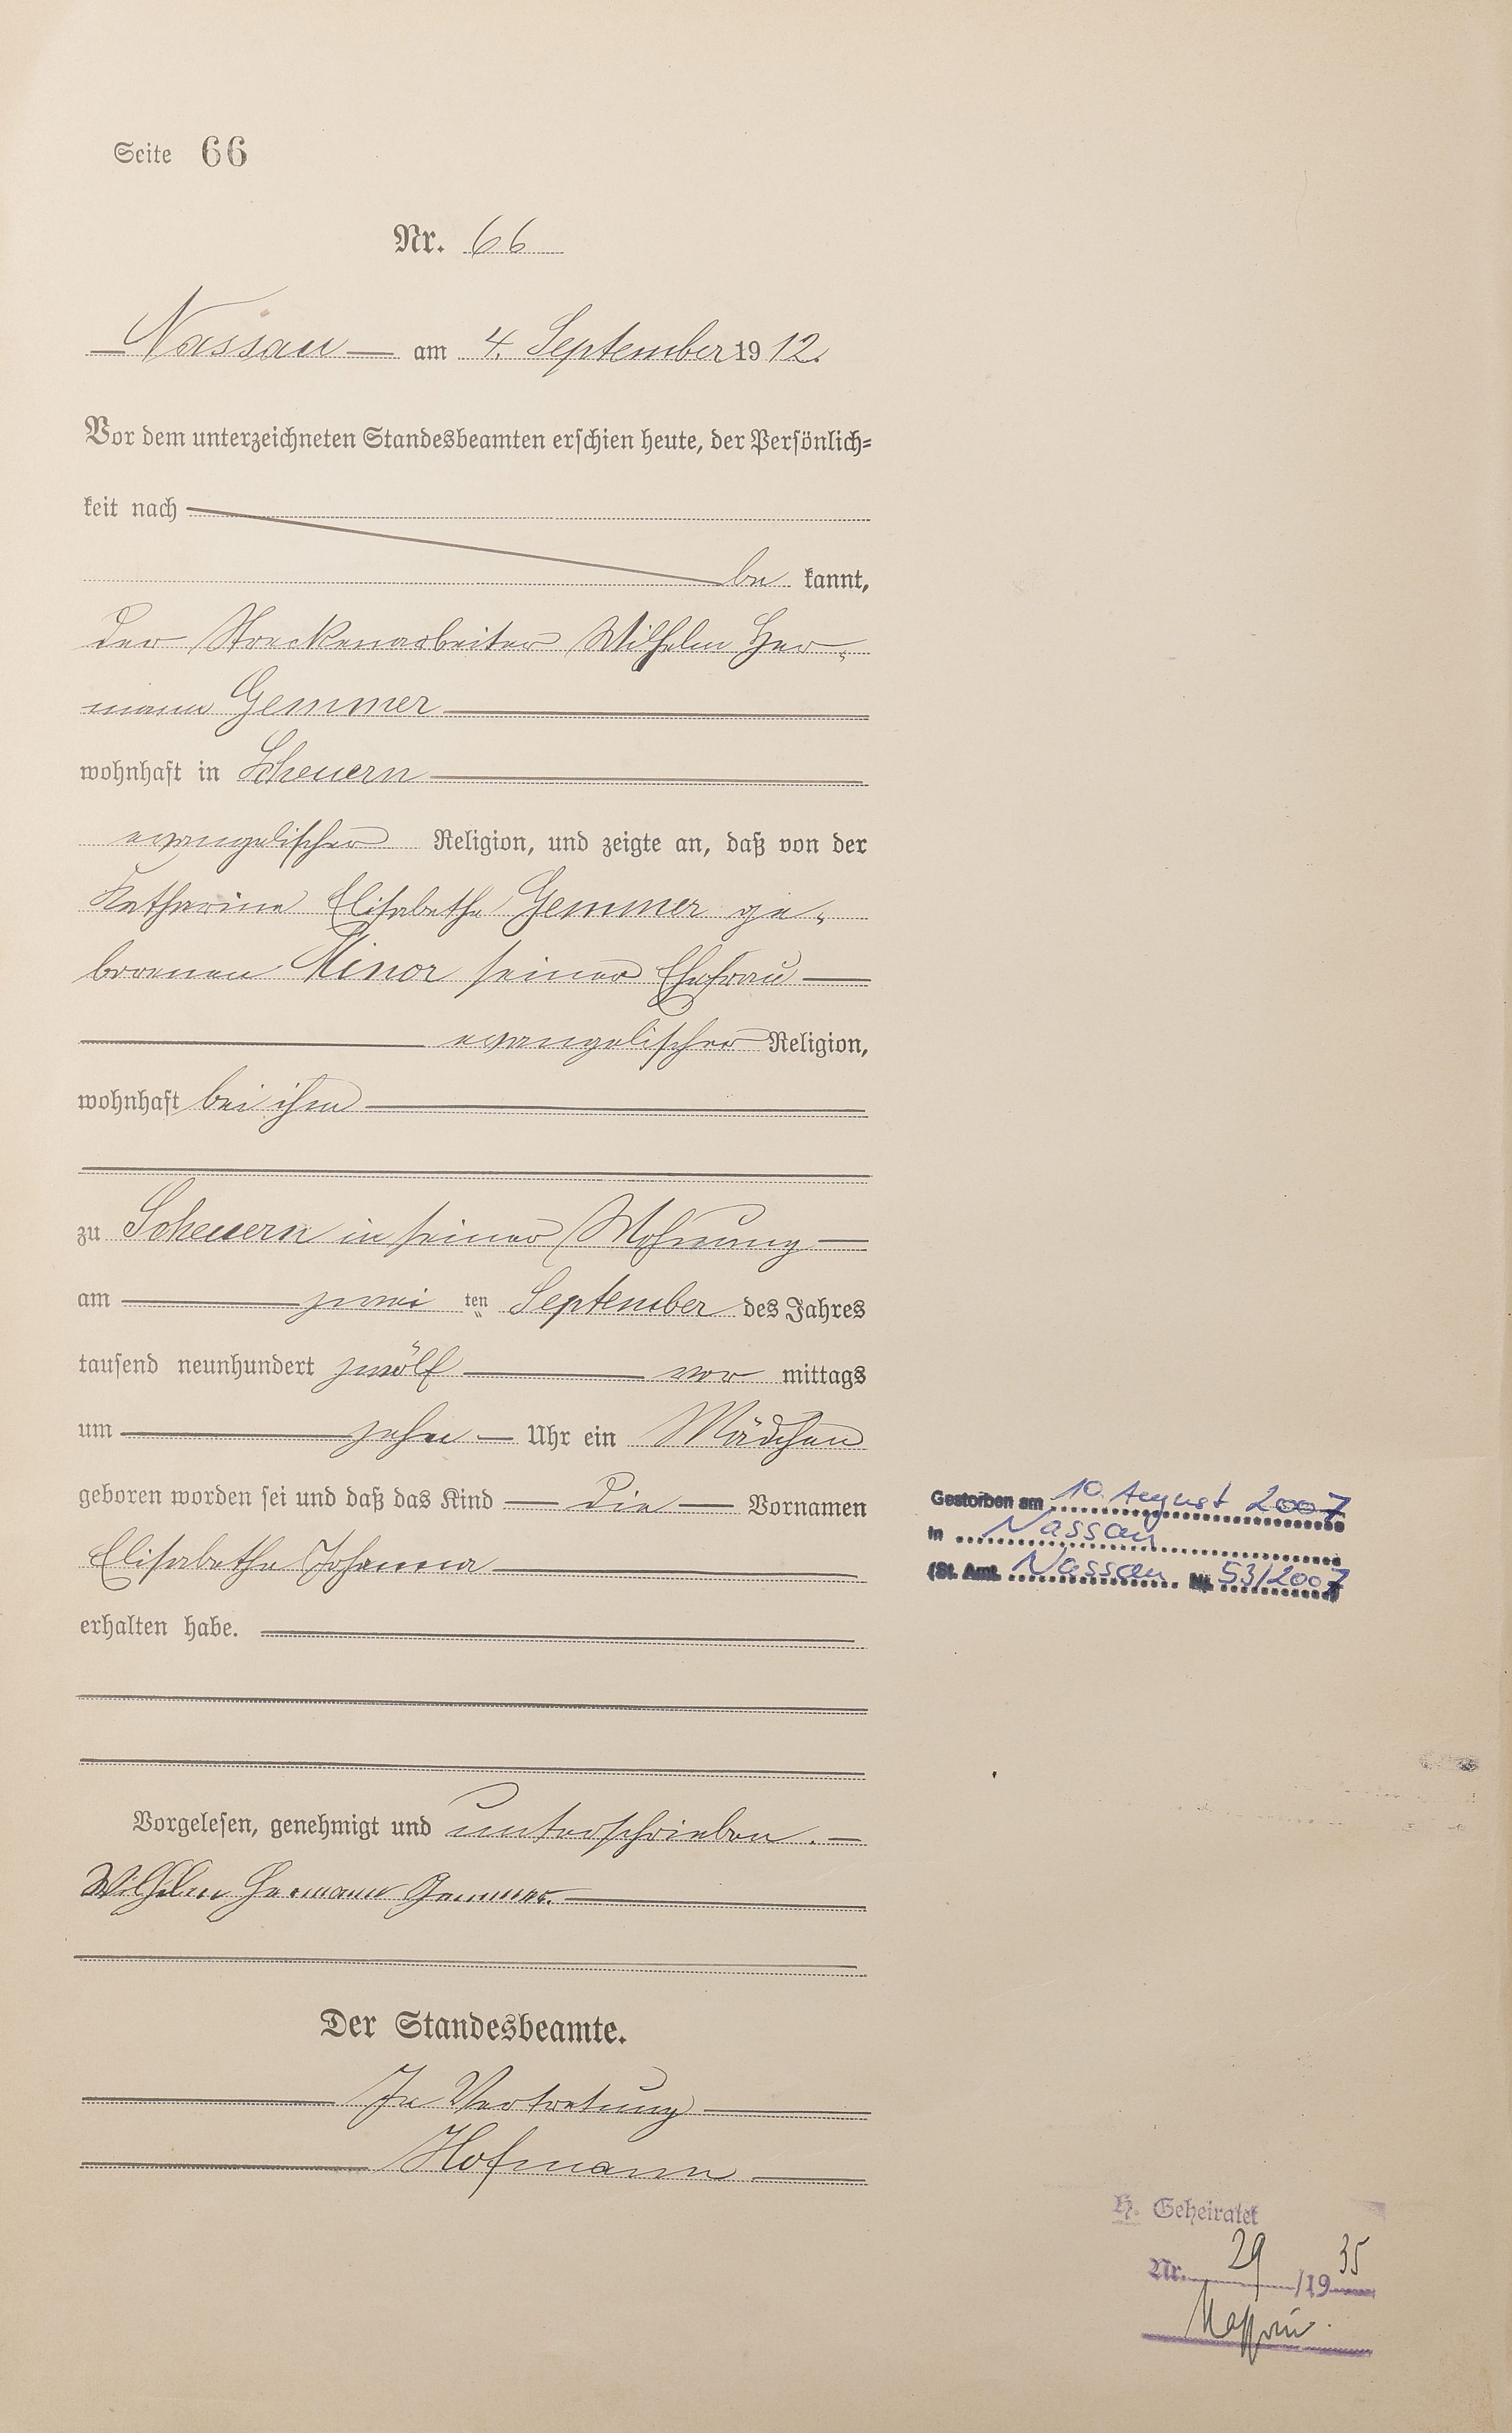 Seite 66
Nr. 66
Nassau am 4. September 1912.
Vor dem unterzeichneten Standesbeamten erschien heute, der Persönlich=
keit nach
be kannt,
der Streckenarbeiter Wilhelm Her„
mann Gemmer
wohnhaft in Scheuern
evangelischer Religion, und zeigte an, daß von der
Katharine Elisabethe Gemmer ge„
borenen Minor seiner Ehefrau
evangelischer Religion,
wohnhaft bei ihm
zu Scheuern in seiner Wohnung
am zwei ten September des Jahres
tausend neunhundert zwölf vor mittags
um zehn Uhr ein Mädchen
geboren worden sei und daß das Kind die Vornamen
Elisabethe Johanna
erhalten habe.
Vorgelesen, genehmigt und unterschrieben.
Wilhelm Hermann Gemmer.
Der Standesbeamte.
In Vertretung
Hofmann
Gestorben am 10. August 2007
in Nassau
(St. Amt. Nassau Nr. 53/2007
H. Geheiratet
Nr. 29 /1935
Nassau.